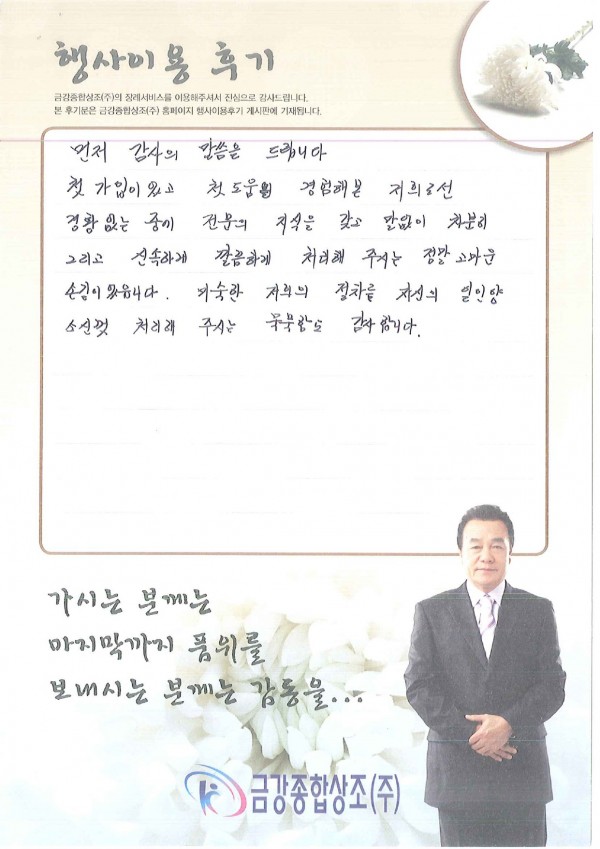 행사이용 후기
금강종합상조(주)의 장례서비스를 이용해주셔서 진심으로 감사드립니다.
본 후기분은 금강종합상조(주) 홈페이지 행사이용후기 게시판에 기재됩니다.
먼저 감사의 말씀은 드립니다
첫 가입이었고 첫 도움을 경험해본 저희로선
경황 없는 중에 전문의 지식을 갖고 말없이 차분히
그리고 신속하게 깔끔하게 처리해 주시는 정말 고마운
손길이 있읍니다. 미숙한 저희의 절차를 자신의 일인양
소신껏 처리해 주시는 묵묵함도 감사합니다.
가시는 분께는
마지막까지 품위를
보내시는 분께는 감동을...
금강종합상조(주)